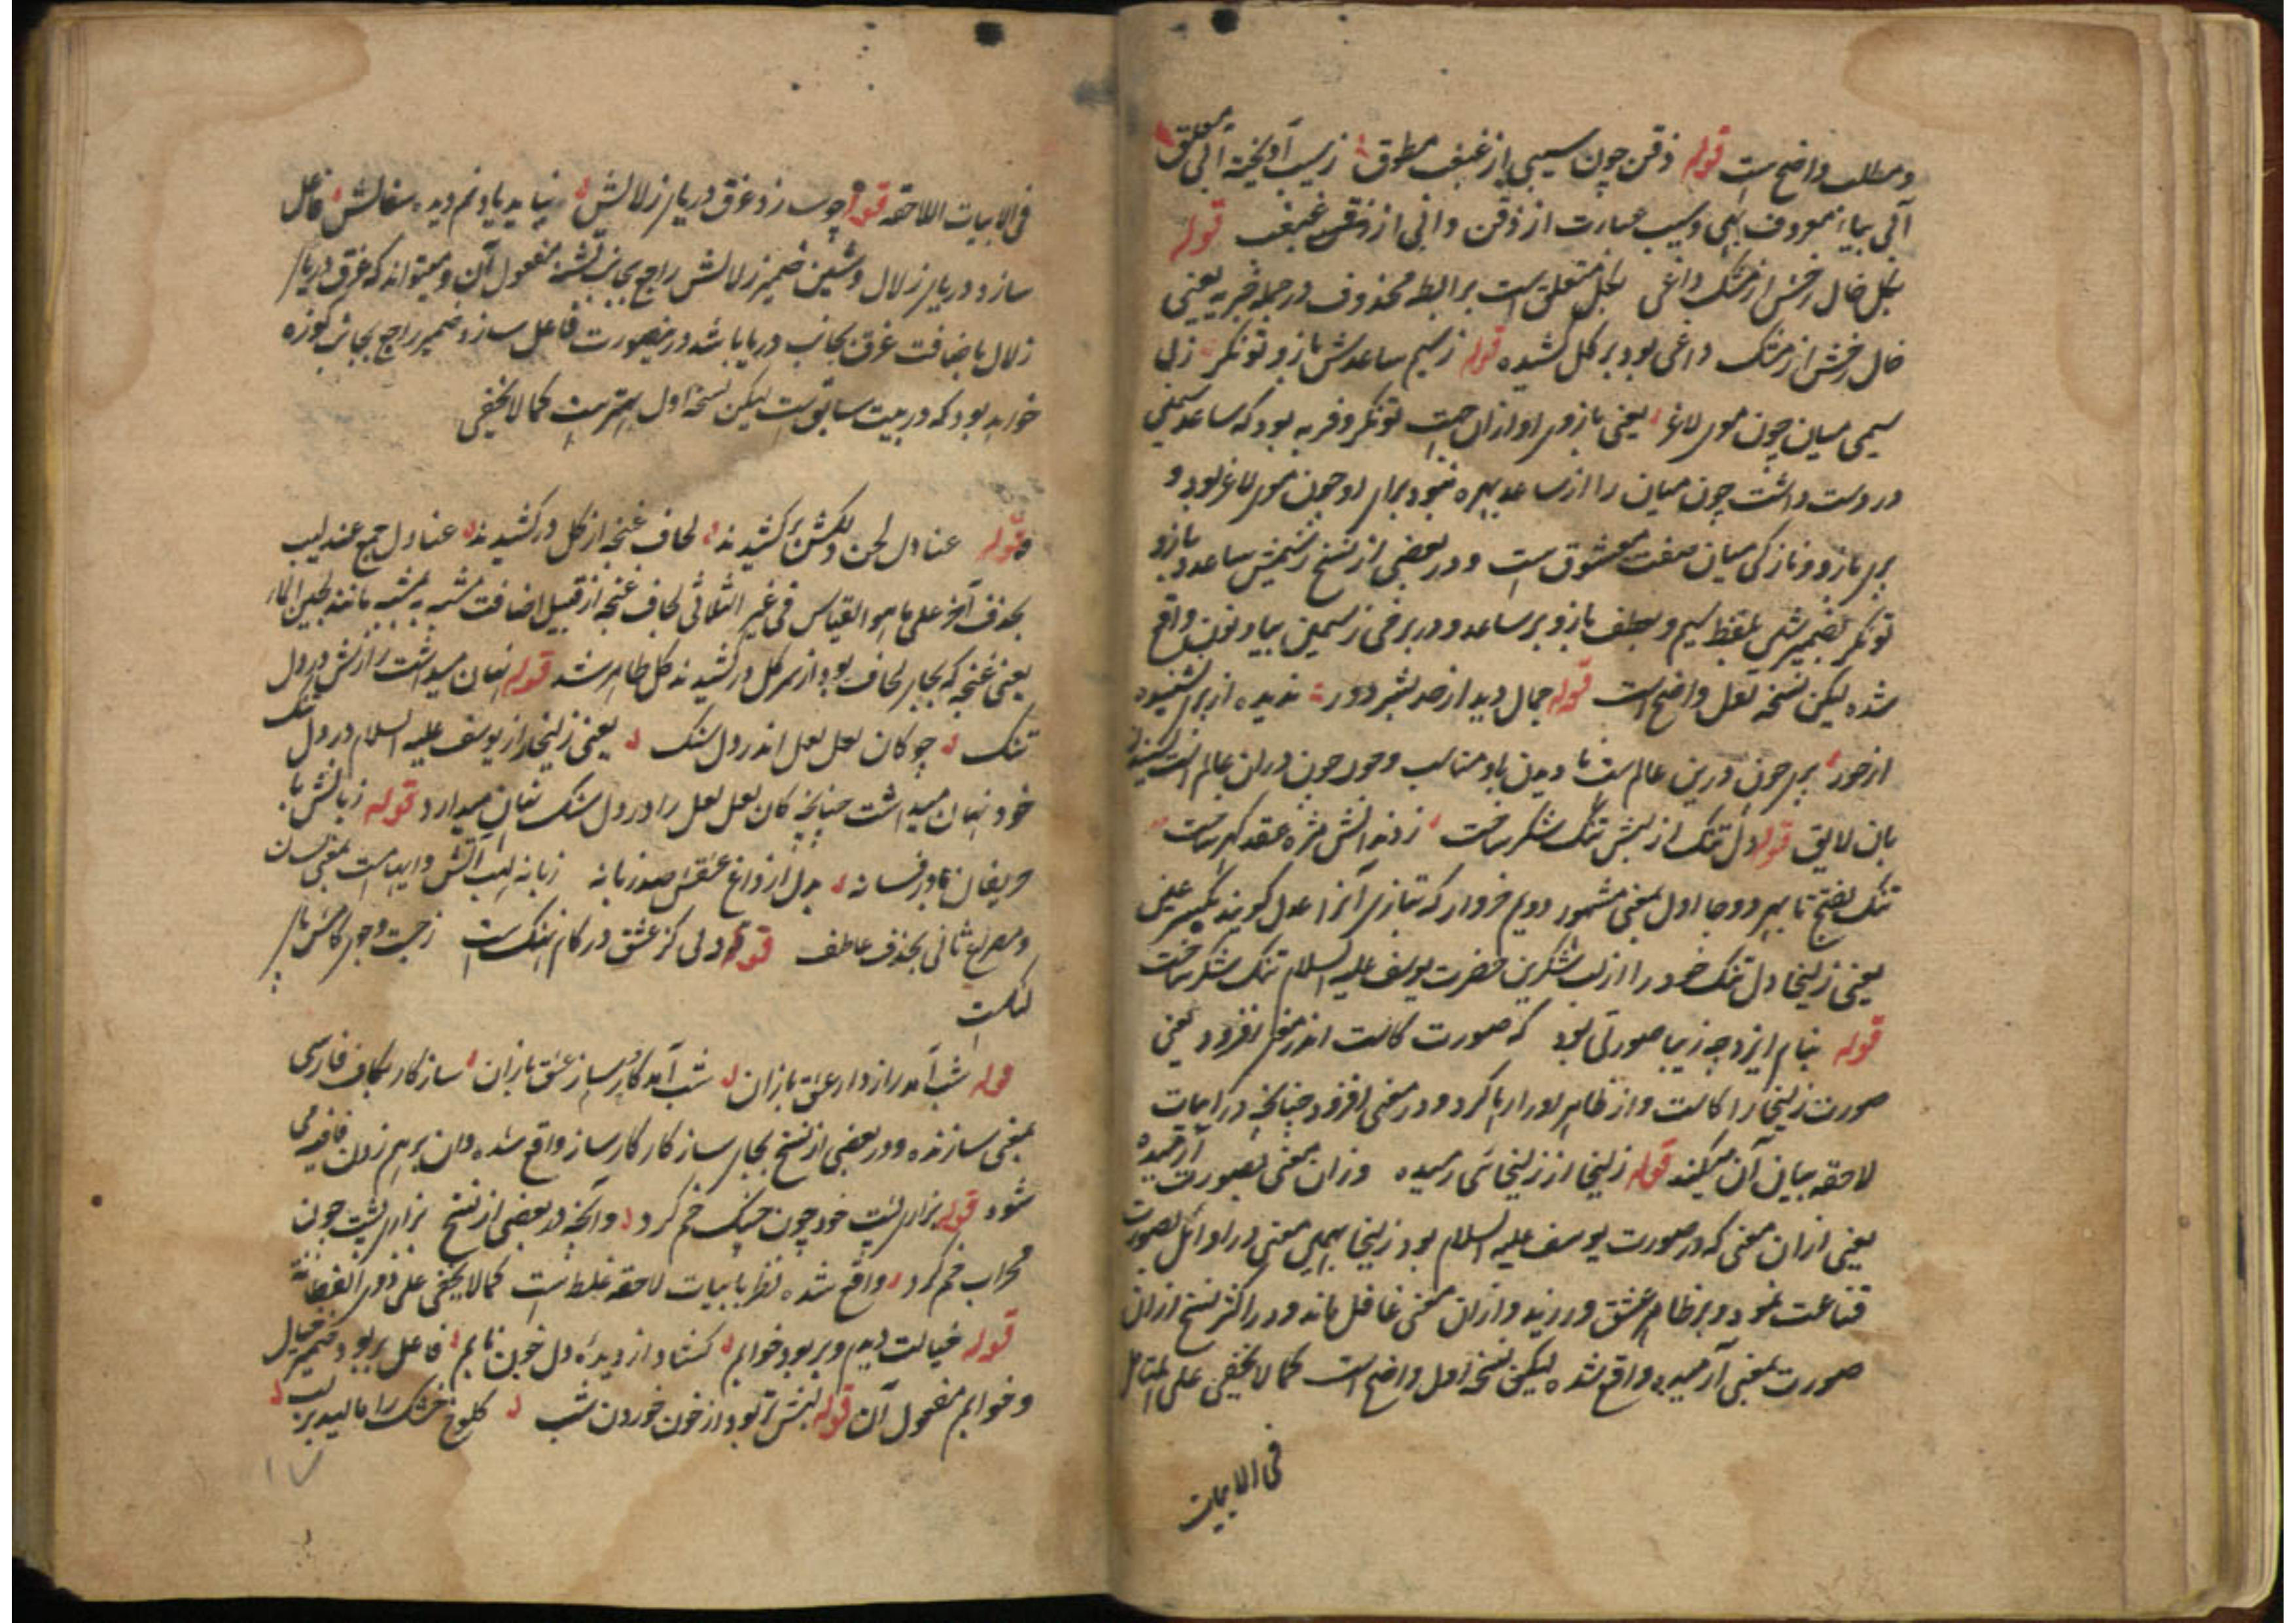 و مطلب واضح است قوله ذقن چون سیبی از غبغب مطوق ز سیب آویخته آبی معلق
آبی بیاء معروف بهی و سیب عبارت از ذقن و آبی از غبغب قوله
بکل خال رخش از مشک داغی بکل متعلق است برابطه محذوف در جمله خبریه یعنی
خال رخش از مشک داغی بود بر کل کشیده قوله ز سیم ساعدش بازو تونکر ز بی
سیمی میان چون موی لاغر یعنی بازوی او از ان جهت تونکر و فربه بود که ساعد سیمین
در دست داشت چون میان را از ساعد بهره نبود برای او چون موی لاغر بود و
پری بازو و نازکی میان صفت معشوق است و در بعضی از نسخ ز سیمش ساعد و بازو
تونکر بضمیر شین بلفظ سیم و بعطف بازو بر ساعد و در برخی ز سیمین بیا و نون واقع
شده لیکن نسخه اول واضح است قوله جمال دید از حد بشر دور ندیده از پری نشنیده
از حور پری چون درین عالم دیدن باو مناسب و حور چون دران عالم است شنیدن
بان لایق قوله دل تنک از لبش تنک شکر ساخت ز دندانش مژه عقد کهر ساخت
تنک بفتح تا بهر دو جا اول بمعنی مشهور دوم خروار که بتازی آنرا عدل کویند بکسر عین
یعنی زلیخا دل تنک خود را از لب شکرین حضرت یوسف علیه السلام تنک شکر ساخت
قوله بنام ایزد چه زیبا صورتی بود که صورت کاست اندر معنی افزود یعنی
صورت زلیخا را کاست و از ظاهر او را رها کرد و در معنی افزود چنانچه در ابیات
لاحقه بیان آن میکند قوله زلیخا از زلیخائی رمیده وزان معنی بصورت آرمیده
یعنی ازان معنی که در صورت یوسف علیه السلام بود زلیخا بهمین معنی در اوائل بصورت
قناعت نمود و بر ظاهر عشق ورزید و ازان معنی غافل ماند و در اکثر نسخ ازان
صورت بمعنی آرمیده واقع شده لیکن نسخه اول واضح است کما لا یخفی علی المتامل
فی الابیات
فی الابیات اللاحقه قوله چو سازد غرق دریای زلالش نیاید یاد نم دیده سفالش فاعل
سازد دریای زلال و شین ضمیر زلالش راجع بجانب تشنه مفعول آن و میتواند که غرق دریای
زلال باضافت غرق بجانب دریا باشد درینصورت فاعل سازد ضمیر راجع بجانب کوزه
خواهد بود که در بیت سابق است لیکن نسخه اول بهتر است کما لا یخفی
قوله عنادل لحن دلکش برکشیدند لحاف غنچه از کل درکشیدند عنادل جمع عندلیب
بحذف آخر علی ما هو القیاس فی غیر الثلاثی لحاف غنچه از قبیل اضافت مشبه به بمشبه مانند لجین الماء
یعنی غنچه که بجای لحاف بود از سر کل درکشیدند کل ظاهر شد قوله نهان میداشت رازش در دل
تنک چو کان لعل لعل اندر دل سنک یعنی زلیخا راز یوسف علیه السلام در دل تنک
خود نهان میداشت چنانچه کان لعل لعل را در دل سنک نهان میدارد قوله زبانش با
حریفان در فسانه بدل از داغ عشقش صد زبانه زبانه لهب آتش و ایهام است بمعنی لسان
و مصراع ثانی بحذف عاطف قوله دلی کز عشق در کام نهنک است ز جست و جوی کامش پای
لنکست
قوله شب آمد رازدار عشق بازان شب آمد سازکار عشق بازان سازکار بکاف فارسی
بمعنی سازنده و در بعضی از نسخ بجای سازکار کارساز واقع شده و ان برهم زدن قافیه می
شود قوله بزاری پشت خود چون چنک خم کرد و آنچه در بعضی از نسخ بزاری پشت چون
محراب خم کرد واقع شده نظر بابیات لاحقه غلط است کما لا یخفی علی ذوی الفطانة
قوله خیالت دیدم و بربود خوابم کشاد از دیده دل خون نابم فاعل بربود ضمیر خیال
و خوابم مفعول آن قوله لبش تر بود از خون خوردن شب کلوخ خشک را مالید بر لب